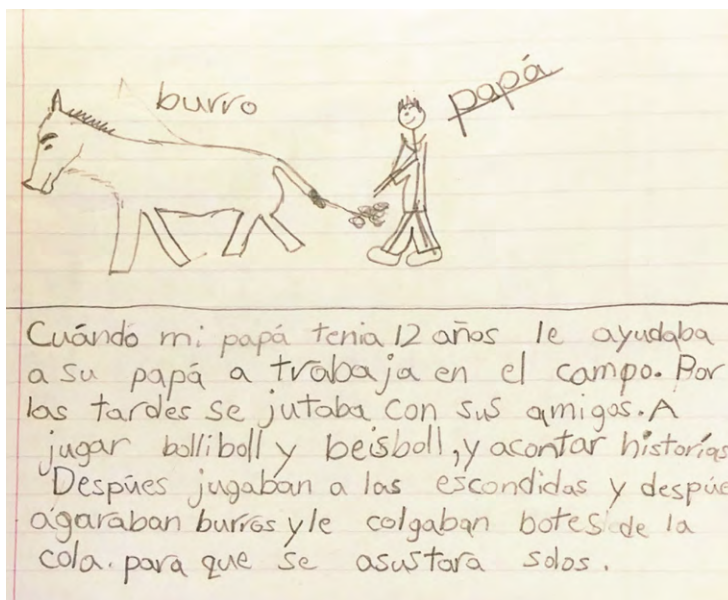 burro
papá
Cuándo mi papá tenia 12 años le ayudaba
a su papá a trabaja en el campo. Por
las tardes se jutaba con sus amigos. A
jugar bolliboll y beisboll, y acontar historías
Despúes jugaban a las escondidas y despúe
agaraban burros y le colgaban botes de la
cola. para que se asustara solos.